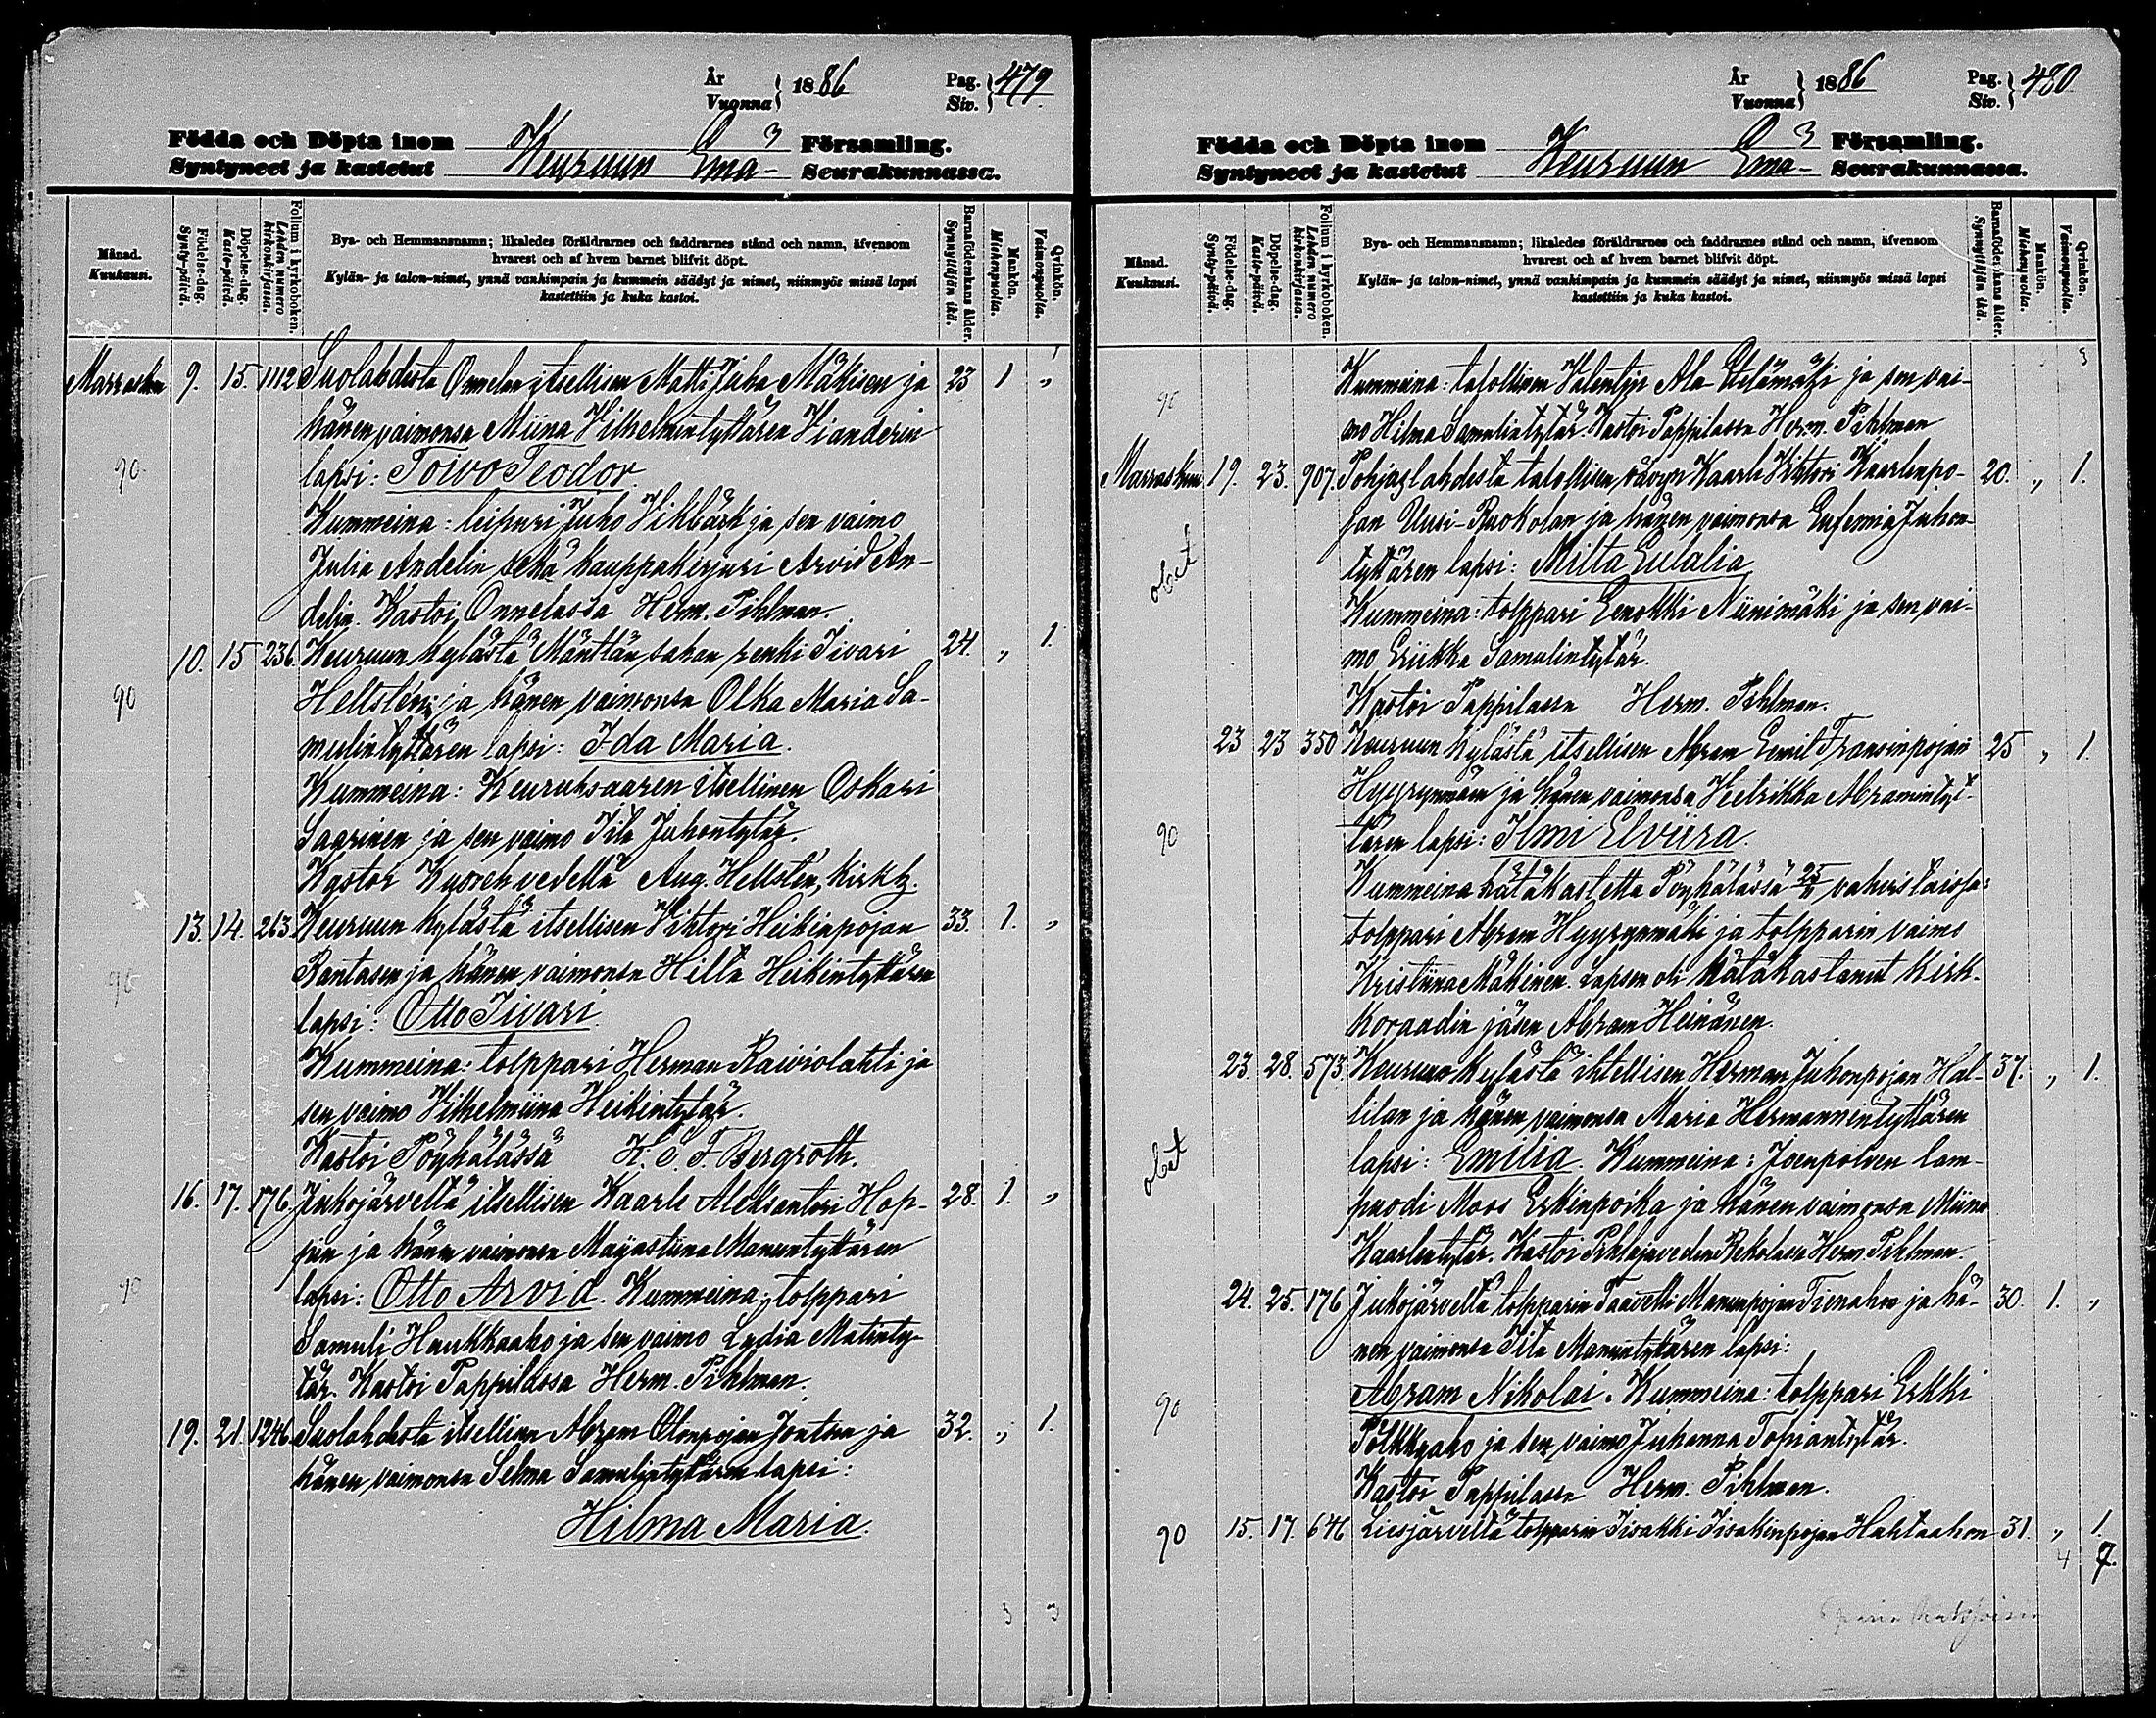 År
Vuonna } 1886 Pag.
Siv. } 479
Födda och Döpta inom
Syntyneet ja kastetut Keuruun Emä- Församling.
Seurakunnassa.
Månad.
Kuukausi.
Födelse-dag.
Synty-päivä.
Döpelse-dag.
Kaste-päivä.
Folium i kyrkoboken.
Lehden numero kirkonkirjassa.
Bya- och Hemmansnamn; likaledes föräldrarnes och faddrarnes stånd och namn, äfvensom
hvarest och af hvem barnet blifvit döpt.
Kylän- ja talon-nimet, ynnä vanhimpain ja kummein säädyt ja nimet, niinmyös missä lapsi
kastettiin ja kuka kastoi.
Barnaföderskans ålder.
Synnyttäjän ikä.
Mankön.
Miehenpuolia.
Qvinkön.
Vaimonpuolia.
Marraskun 9. 15. 1112 Suolahdesta Onnelan itsellisen Matti Juha Mäkisen ja 23 1 „
hänen vaimonsa Miina Vilhelmintyttären Vianderin
90 lapsi: Toivo Teodor.
Kummeina: leipuri Juho Vikbärk ja sen vaimo
Julia Andelin sekä kauppakirjuri Arvid An-
delin. Kastoi Onnelassa Herm. Pihlman.
10. 15 236. Keuruun kylästä Mänttän sahan renki Iivari 24. „ 1.
90 Hellsten ja hänen vaimonsa Olka Maria Sa-
mulintyttären lapsi: Ida Maria.
Kummeina: Keuruksaaren itsellinen Oskari
Saarinen ja sen vaimo Iita Juhontytär.
Kastoi Kuorehvedellä Aug. Hellstén, kirkh.
13. 14. 263. Keuruun kylästä itsellisen Vihtori Heikinpojan 33. 1. „
90 Rantasen ja hänen vaimonsa Hilta Heikintyttären
lapsi: Otto Iivari.
Kummeina: tolppari Herman Raiviolahti ja
sen vaimo Vilhelmiina Heikintytär.
Kastoi Pöyhölässä K. S. F. Bergroth.
16. 17. 176. Jukojärveltä itsellisen Kaarle Aleksanteri Hop- 28. 1. „
pun ja hänen vaimonsa Majastiina Manuntyttären
90 lapsi: Otto Arvid. Kummeina: tolppari
Samuli Haukkaaho ja sen vaimo Lydia Matinty-
tär. Kastoi Pappilassa Herm. Pihlman.
19. 21. 1246. Suolahdesta itsellisen Abram Otonpojan Jontsen ja 32. „ 1.
hänen vaimonsa Selma Samulintyttären lapsi:
Hilma Maria.
3 3
År
Vuonna } 1886 Pag.
Siv. } 480
Födda och Döpta inom
Syntyneet ja kastetut Keuruun Emä- Församling.
Seurakunnassa.
Månad.
Kuukausi.
Födelse-dag.
Synty-päivä.
Döpelse-dag.
Kaste-päivä.
Folium i kyrkoboken.
Lehden numero kirkonkirjassa.
Bya- och Hemmansnamn; likaledes föräldrarnes och faddrarnes stånd och namn, äfvensom
hvarest och af hvem barnet blifvit döpt.
Kylän- ja talon-nimet, ynnä vanhimpain ja kummein säädyt ja nimet, niinmyös missä lapsi
kastettiin ja kuka kastoi.
Barnaföderskans ålder.
Synnyttäjän ikä.
Mankön.
Miehenpuolia.
Qvinkön.
Vaimonpuolia.
90 Kummeina: talollinen Valentin Ala-Etelämäki ja sen vai-
mo Hilma Samulintytär. Kastoi Pappilassa Herm. Pihlman
Marraskun 19. 23. 907. Pohjaslahdesta talollisen vävyn Kaarle Vihtori Kaarlenpo- 20. „ 1.
jan Uusi-Ruokolan ja hänen vaimonsa Eufemia Juhon-
obiit tyttären lapsi: Milta Eulalia
Kummeina: tolppari Eenokki Niinimäki ja sen vai-
mo Eriikka Samulintytär.
Kastoi Pappilassa Herm. Pihlman.
23 23 350 Keuruun kylästä itsellisen Abram Eemil Fransinpojan 25 „ 1.
Hyyrynmäen ja hänen vaimonsa Heetrikka Abramintyt-
90 tären lapsi: Ilmi Elviira.
Kummeina hätäkastetta Pöyhölässä 25/11 vahvistaissa:
tolppari Abram Hyyrynmäki ja tolpparin vaimo
Kristiina Mäkinen. Lapsen oli hätäkastanut kirk-
koraadin jäsen Abram Heinänen.
23. 28. 573. Keuruun kylästä ittellisen Herman Juhonpojan Hal- 37. „ 1.
lilan ja hänen vaimonsa Maria Hermannintyttären
obiit lapsi: Emilia. Kummeina: Joenpolven lam-
puodi Moos Erkinpoika ja hänen vaimonsa Miina
Kaarlentytär. Kastoi Pihlajaveden Rekolassa Herm. Pihlman.
24. 25. 176 Jukojärveltä tolpparin Taavetti Manunpojan Tienahon ja hä- 30. 1. „
nen vaimonsa Iita Manuntyttären lapsi:
90 Abram Nikolai. Kummeina: tolppari Erkki
Pölkkyaho ja sen vaimo Juhanna Tofiantytär.
Kastoi Pappilassa Herm. Pihlman.
90 15. 17. 646 Liesjärveltä tolpparin Iisakki Iisakinpojan Hahtaahon 31. „ 1.
4 7.